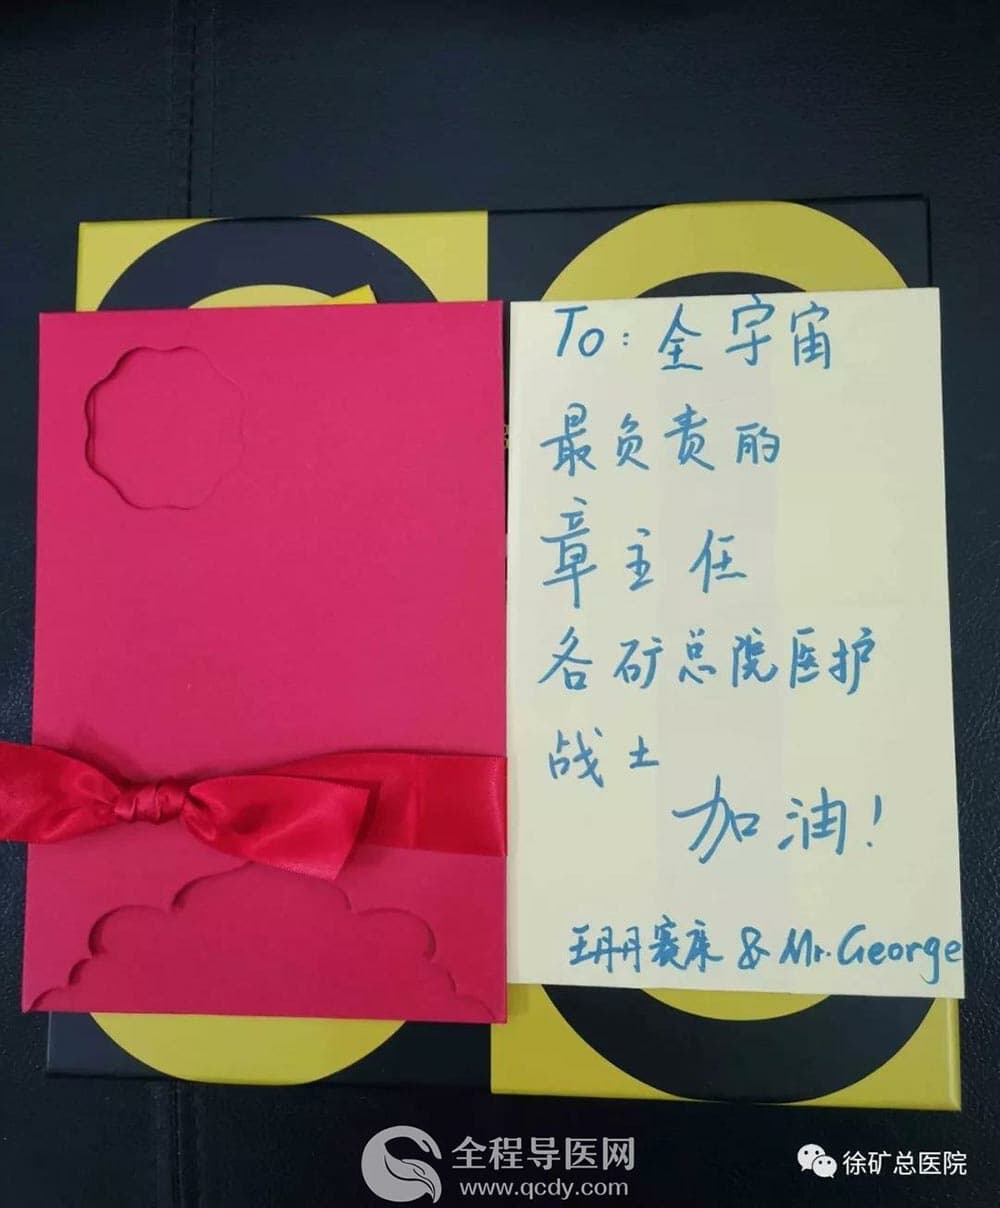 To: 全宇宙
最负责的
章主任
各矿总院医护
战士
加油!
& Mr. George
全程导医网
www.qcdy.com
徐矿总医院